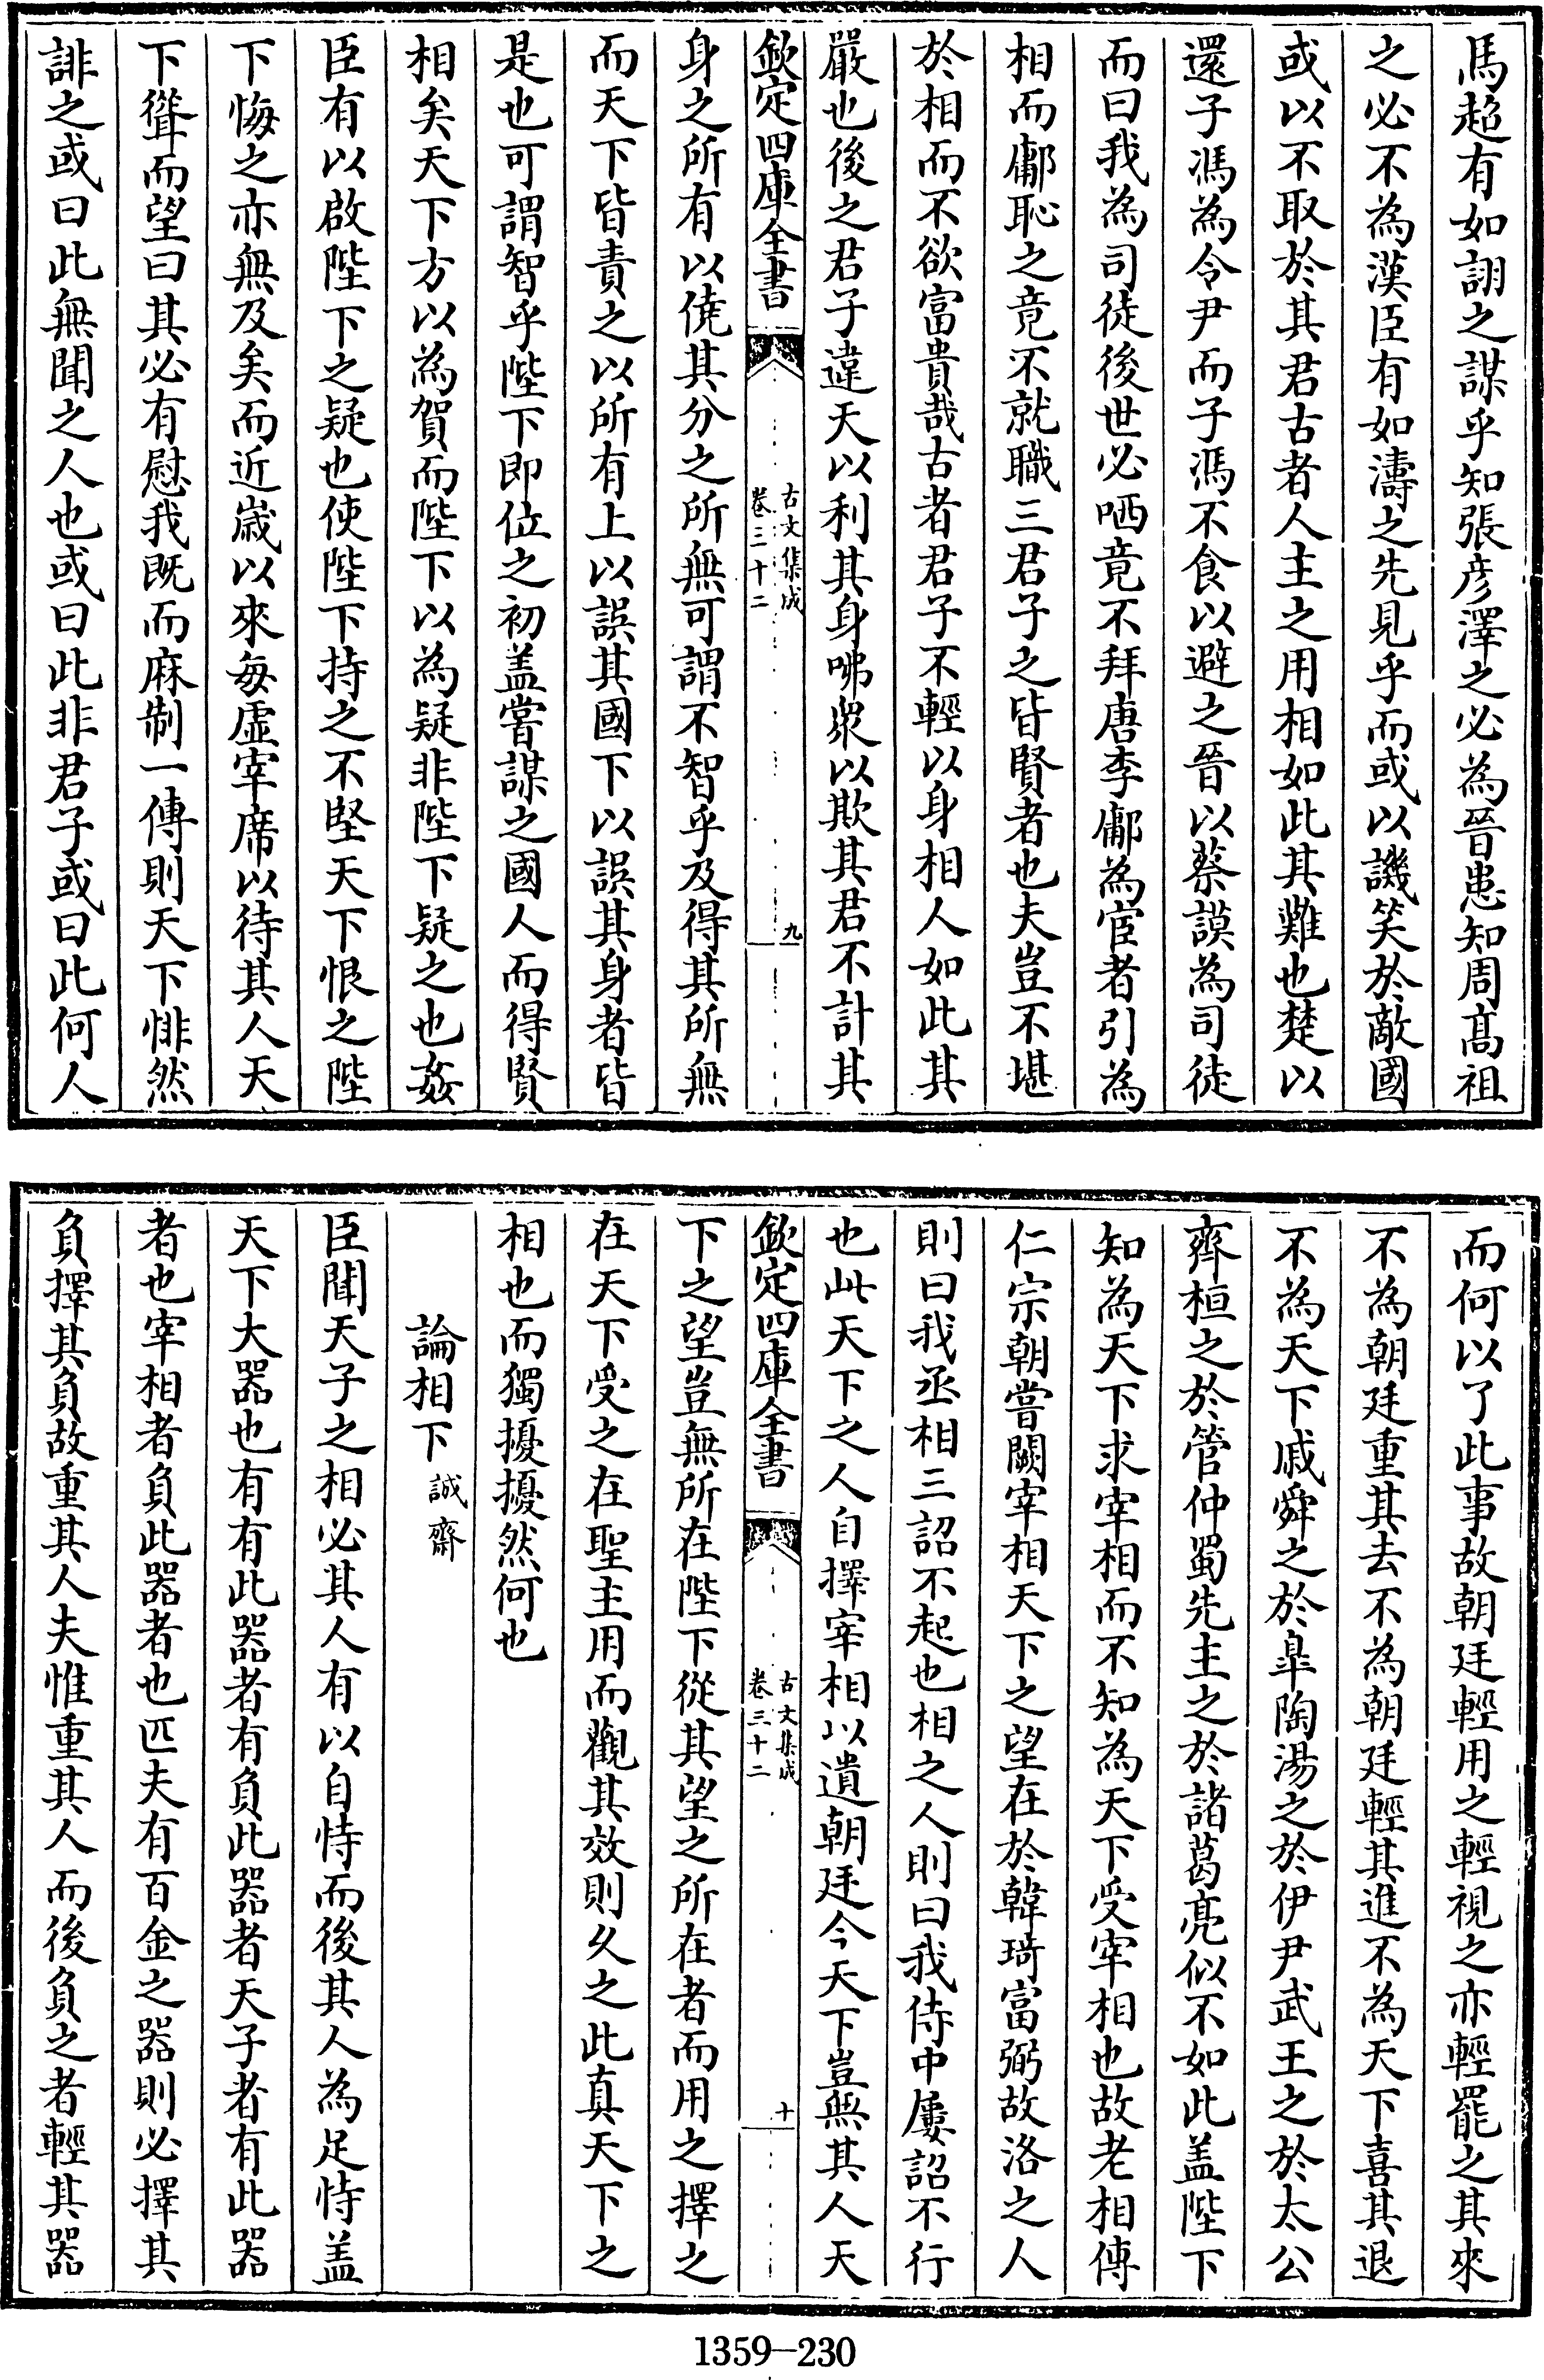 馬超有如詡之謀乎知張彥澤之必為晉患知周髙祖
之必不為漢臣有如濤之先見乎而或以譏笑於敵國
或以不取於其君古者人主之用相如此其難也楚以
還子馮為令尹而子馮不食以避之晉以蔡謨為司徒
而曰我為司徒後世必哂竟不拜唐李鄘為宦者引為
相而鄘恥之竟不就職三君子之皆賢者也夫豈不堪
於相而不欲富貴哉古者君子不輕以身相人如此其
嚴也後之君子違天以利其身咈衆以欺其君不計其
欽定四庫全書
古文集成
卷三十二
九
身之所有以僥其分之所無可謂不智乎及得其所無
而天下皆責之以所有上以誤其國下以誤其身者皆
是也可謂智乎陛下即位之初盖嘗謀之國人而得賢
相矣天下方以為賀而陛下以為疑非陛下疑之也姦
臣有以啟陛下之疑也使陛下持之不堅天下恨之陛
下悔之亦無及矣而近嵗以來每虛宰席以待其人天
下聳而望曰其必有慰我既而麻制一傳則天下悱然
誹之或曰此無聞之人也或曰此非君子或曰此何人
而何以了此事故朝廷輕用之輕視之亦輕罷之其來
不為朝廷重其去不為朝廷輕其進不為天下喜其退
不為天下戚舜之於臯陶湯之於伊尹武王之於太公
齊桓之於管仲蜀先主之於諸葛亮似不如此盖陛下
知為天下求宰相而不知為天下受宰相也故老相傳
仁宗朝嘗闕宰相天下之望在於韓琦富弼故洛之人
則曰我丞相三詔不起也相之人則曰我侍中屢詔不行
也此天下之人自擇宰相以遺朝廷今天下豈無其人天
欽定四庫全書
古文集成
卷三十二
十
下之望豈無所在陛下從其望之所在者而用之擇之
在天下受之在聖主用而觀其效則久之此真天下之
相也而獨擾擾然何也
論相下 誠齋
臣聞天子之相必其人有以自恃而後其人為足恃盖
天下大器也有有此器者有負此器者天子者有此器
者也宰相者負此器者也匹夫有百金之器則必擇其
負擇其負故重其人夫惟重其人而後負之者輕其器
1359—230